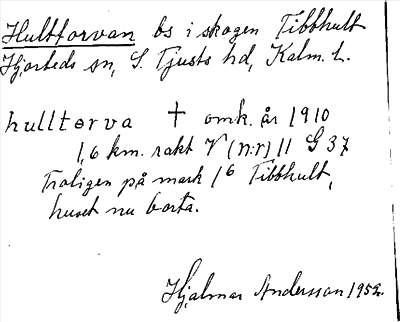 Hultforvan bs i skogen Tibbhult
Hjorteds sn, S. Tjusts hd, Kalm. L.
hulltørva † omk. år 1910
1,6 km. rakt V (n:r) 11 G 37
Troligen på mark 1⁶ Tibbhult,
huset nu borta.
Hjalmar Andersson 1952.